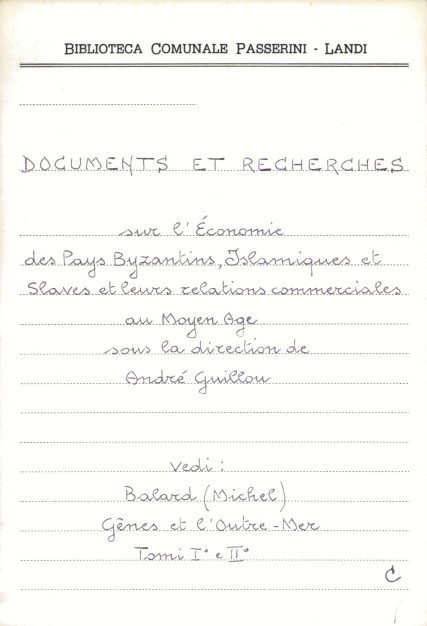 BIBLIOTECA COMUNALE PASSERINI - LANDI
DOCUMENTS ET RECHERCHES
sur l'Économie
des Pays Byzantins, Islamiques et
Slaves et leurs relations commerciales
au Moyen Age
sous la direction de
André Guillou
vedi :
Balard (Michel)
Gênes et l'Outre-Mer
Tomi I° e II°
C